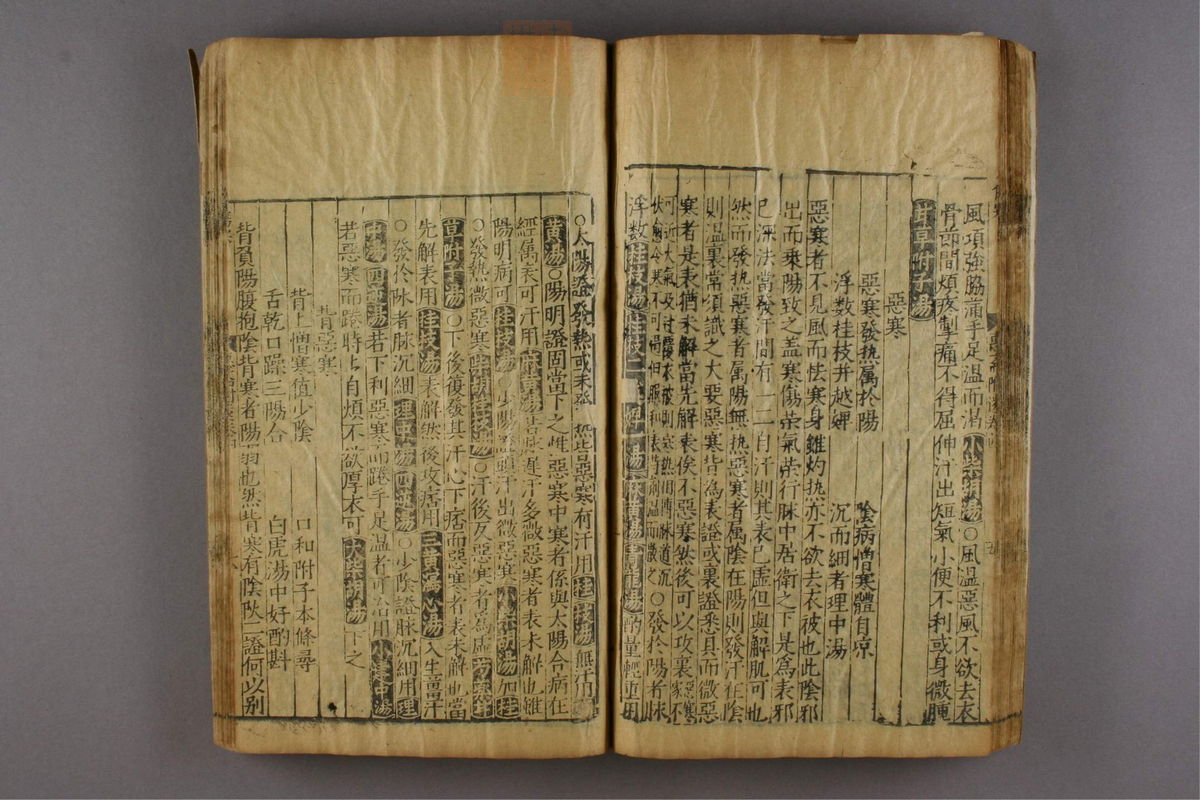 風項強脇滿手足溫而渴小柴胡湯○風溫惡風不欲去衣
骨節間煩疼掣痛不得屈伸汗出短氣小便不利或身微腫
甘草附子湯
惡寒
惡寒發热属於陽 陰病憎寒體自凉
浮数桂枝并越婢 沉而細者理中湯
惡寒者不見風而怯寒身雖灼热亦不欲去衣被也此陰邪
出而乗陽致之盖寒傷荣氣荣行脉中居衛之下是爲表邪
已深法當發汗間有一二自汗則其表已虛但與解肌可也
然而發热惡寒者属陽無热惡寒者属陰在陽則發汗在陰
則溫裏常須識之大要惡寒皆爲表證或裏證悉具而微惡
寒者是表猶未解當先解表俟不惡寒然後可以攻裏惡寒不
可近大氣及
○發於陽者脉
浮数桂枝湯桂枝二 婢一湯麻黄湯青龍湯酌量輕重用
○太陽證發热或未發热皆惡寒有汗用桂枝湯無汗用麻
黄湯○陽明證固當下之惟惡寒中寒者係與太陽合病在
經属表可汗用麻黄湯 遲汗多微惡寒者表未解也雖
陽明病可桂枝湯○少陽證 汗出微惡寒小柴胡湯加桂
○發热微惡寒柴胡桂枝湯○汗後反惡寒者爲虛芍藥甘
草附子湯○下後復發其汗心下痞而惡寒者表未解也當
先解表用桂枝湯表解然後攻痞用三黄瀉心湯入生薑汁
○發於陰者脉沉細理中湯四逆湯○少陰證脉沉細用理
中湯四逆湯若下利惡寒而踡手足溫者可治用小建中湯
若惡寒而踡時時自煩不欲厚衣可大柴胡湯下之
背惡寒
背上憎寒值少陰 口和附子本條尋
舌乾口躁三陽合 白虎湯中好酌斟
背負陽腹抱陰背寒者陽弱也然背寒有陰陽二證何以别